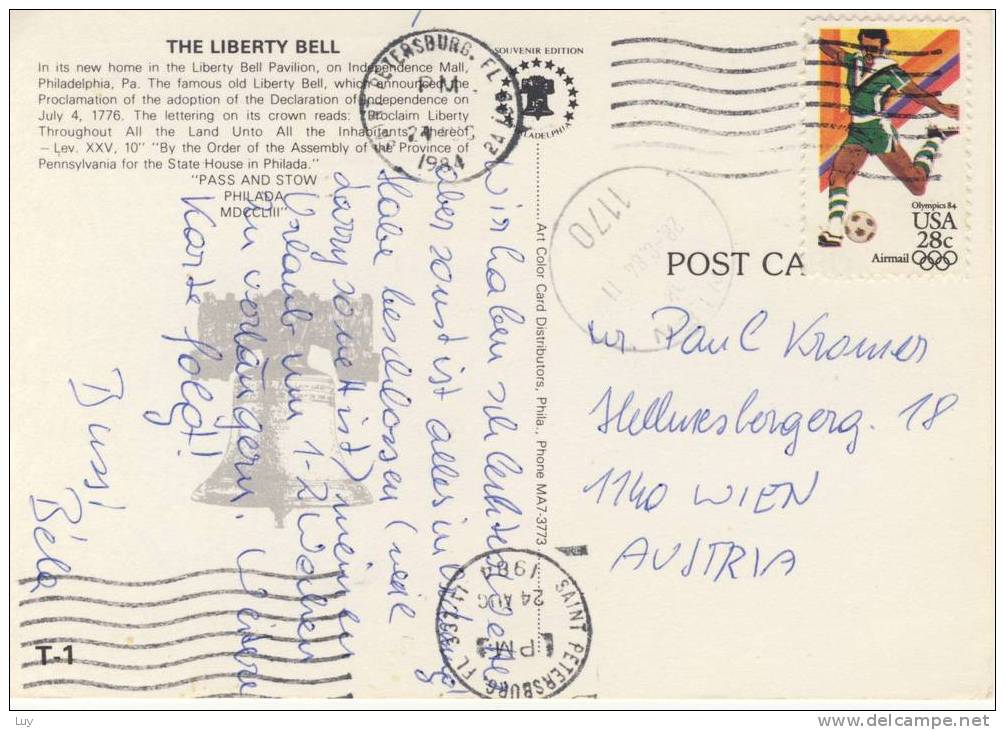 THE LIBERTY BELL
In its new home in the Liberty Bell Pavilion, on Independence Mall,
Philadelphia, Pa. The famous old Liberty Bell, which announced the
Proclamation of the adoption of the Declaration of Independence on
July 4, 1776. The lettering on its crown reads: "Proclaim Liberty
Throughout All the Land Unto All the Inhabitants Thereof
– Lev. XXV, 10" "By the Order of the Assembly of the Province of
Pennsylvania for the State House in Philada."
"PASS AND STOW
PHILADA
MDCCLIII"
SOUVENIR EDITION
PHILADELPHIA
SAINT PETERSBURG, FL
PM
24 AUG
1984
Wir haben schlechtes Wetter
aber sonst ist alles in Ordnung!
Habe beschlossen (weil
so nett ist) meinen
Urlaub um 1-2 Wochen
zu verlängern. Weitere
Karte folgt!
Bussi
Béla
T-1
Art Color Card Distributors, Phila., Phone MA7-3773
SAINT PETERSBURG FL 337
PM
24 AUG
1984
1170
WIEN
POST CA
Olympics 84
USA
28c
Airmail
Paul Kromer
Hellmesbergerg. 18
1140 WIEN
AUSTRIA
Luy
www.delcampe.net